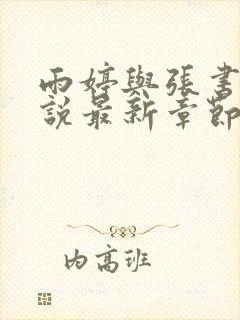 雨婷與張書
說最新章節
内高班